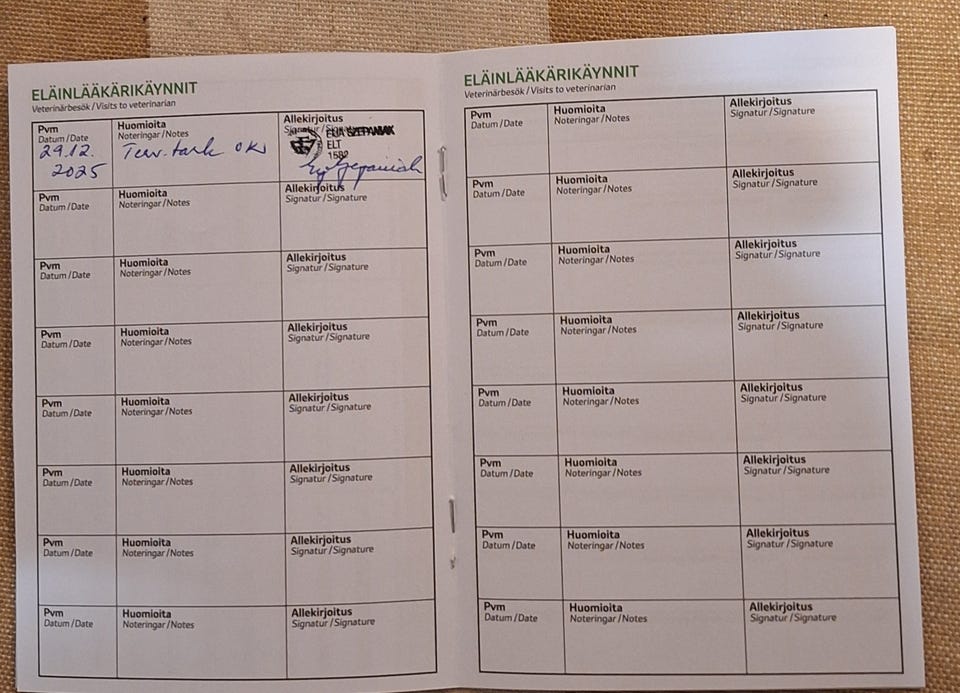 ELÄINLÄÄKÄRIKÄYNNIT
Veterinärbesök / Visits to veterinarian
Pvm Huomioita Allekirjoitus
Datum / Date Noteringar / Notes Signatur / Signature
29.12. Terv. tark ok
2025
SZEPANIAK
ELT
1582
Pvm Huomioita Allekirjoitus
Datum / Date Noteringar / Notes Signatur / Signature
Pvm Huomioita Allekirjoitus
Datum / Date Noteringar / Notes Signatur / Signature
Pvm Huomioita Allekirjoitus
Datum / Date Noteringar / Notes Signatur / Signature
Pvm Huomioita Allekirjoitus
Datum / Date Noteringar / Notes Signatur / Signature
Pvm Huomioita Allekirjoitus
Datum / Date Noteringar / Notes Signatur / Signature
Pvm Huomioita Allekirjoitus
Datum / Date Noteringar / Notes Signatur / Signature
Pvm Huomioita Allekirjoitus
Datum / Date Noteringar / Notes Signatur / Signature
ELÄINLÄÄKÄRIKÄYNNIT
Veterinärbesök / Visits to veterinarian
Pvm Huomioita Allekirjoitus
Datum / Date Noteringar / Notes Signatur / Signature
Pvm Huomioita Allekirjoitus
Datum / Date Noteringar / Notes Signatur / Signature
Pvm Huomioita Allekirjoitus
Datum / Date Noteringar / Notes Signatur / Signature
Pvm Huomioita Allekirjoitus
Datum / Date Noteringar / Notes Signatur / Signature
Pvm Huomioita Allekirjoitus
Datum / Date Noteringar / Notes Signatur / Signature
Pvm Huomioita Allekirjoitus
Datum / Date Noteringar / Notes Signatur / Signature
Pvm Huomioita Allekirjoitus
Datum / Date Noteringar / Notes Signatur / Signature
Pvm Huomioita Allekirjoitus
Datum / Date Noteringar / Notes Signatur / Signature